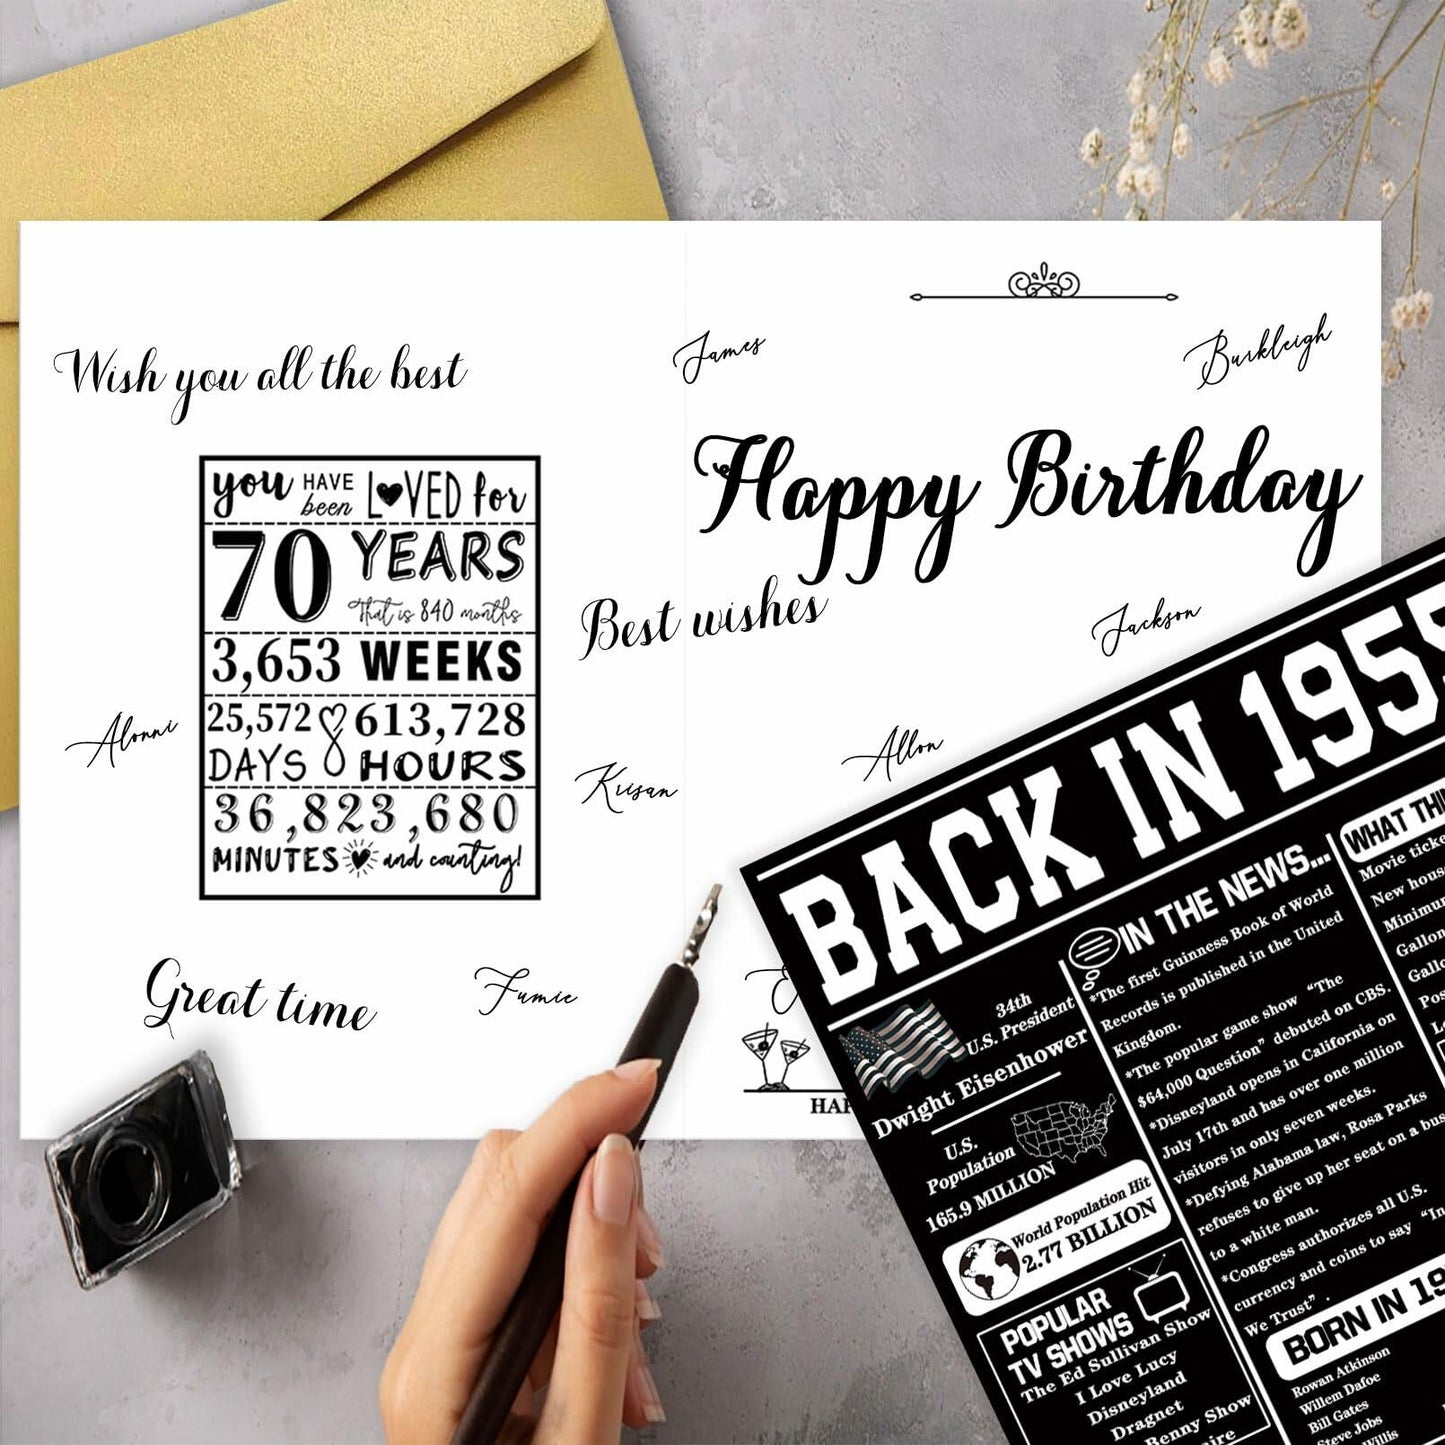 Wish you all the best
you HAVE been LOVED for
70 YEARS
That is 840 months
3,653 WEEKS
25,572 613,728
DAYS HOURS
36,823,680
MINUTES and counting!
Alonni
Great time
Fumie
James
Burkleigh
Happy Birthday
Best wishes
Jackson
Allon
Krisan
HAP
BACK IN 1955
34th
U.S. President
Dwight Eisenhower
U.S.
Population
165.9 MILLION
World Population Hit
2.77 BILLION
POPULAR
TV SHOWS
The Ed Sullivan Show
I Love Lucy
Disneyland
Dragnet
Benny Show
IN THE NEWS...
*The first Guinness Book of World
Records is published in the United
Kingdom.
*The popular game show "The
$64,000 Question" debuted on CBS.
*Disneyland opens in California on
July 17th and has over one million
visitors in only seven weeks.
*Defying Alabama law, Rosa Parks
refuses to give up her seat on a bus
to a white man.
*Congress authorizes all U.S.
currency and coins to say "In
We Trust" .
BORN IN 19
Rowan Atkinson
Willem Dafoe
Bill Gates
Steve Jobs
Willis
WHAT THI
Movie ticke
New hous
Minimum
Gallon
Gallo
Pos